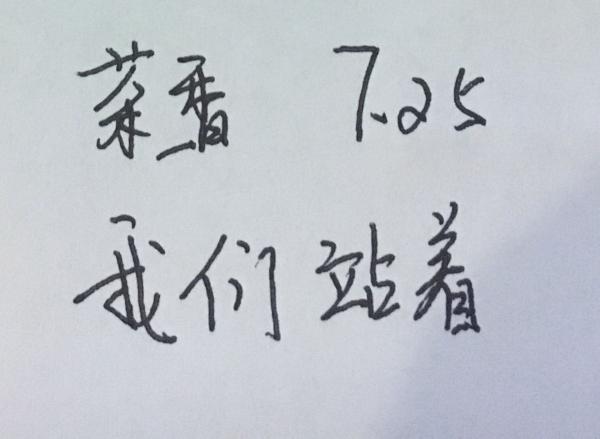 菜香 7.25
我们站着